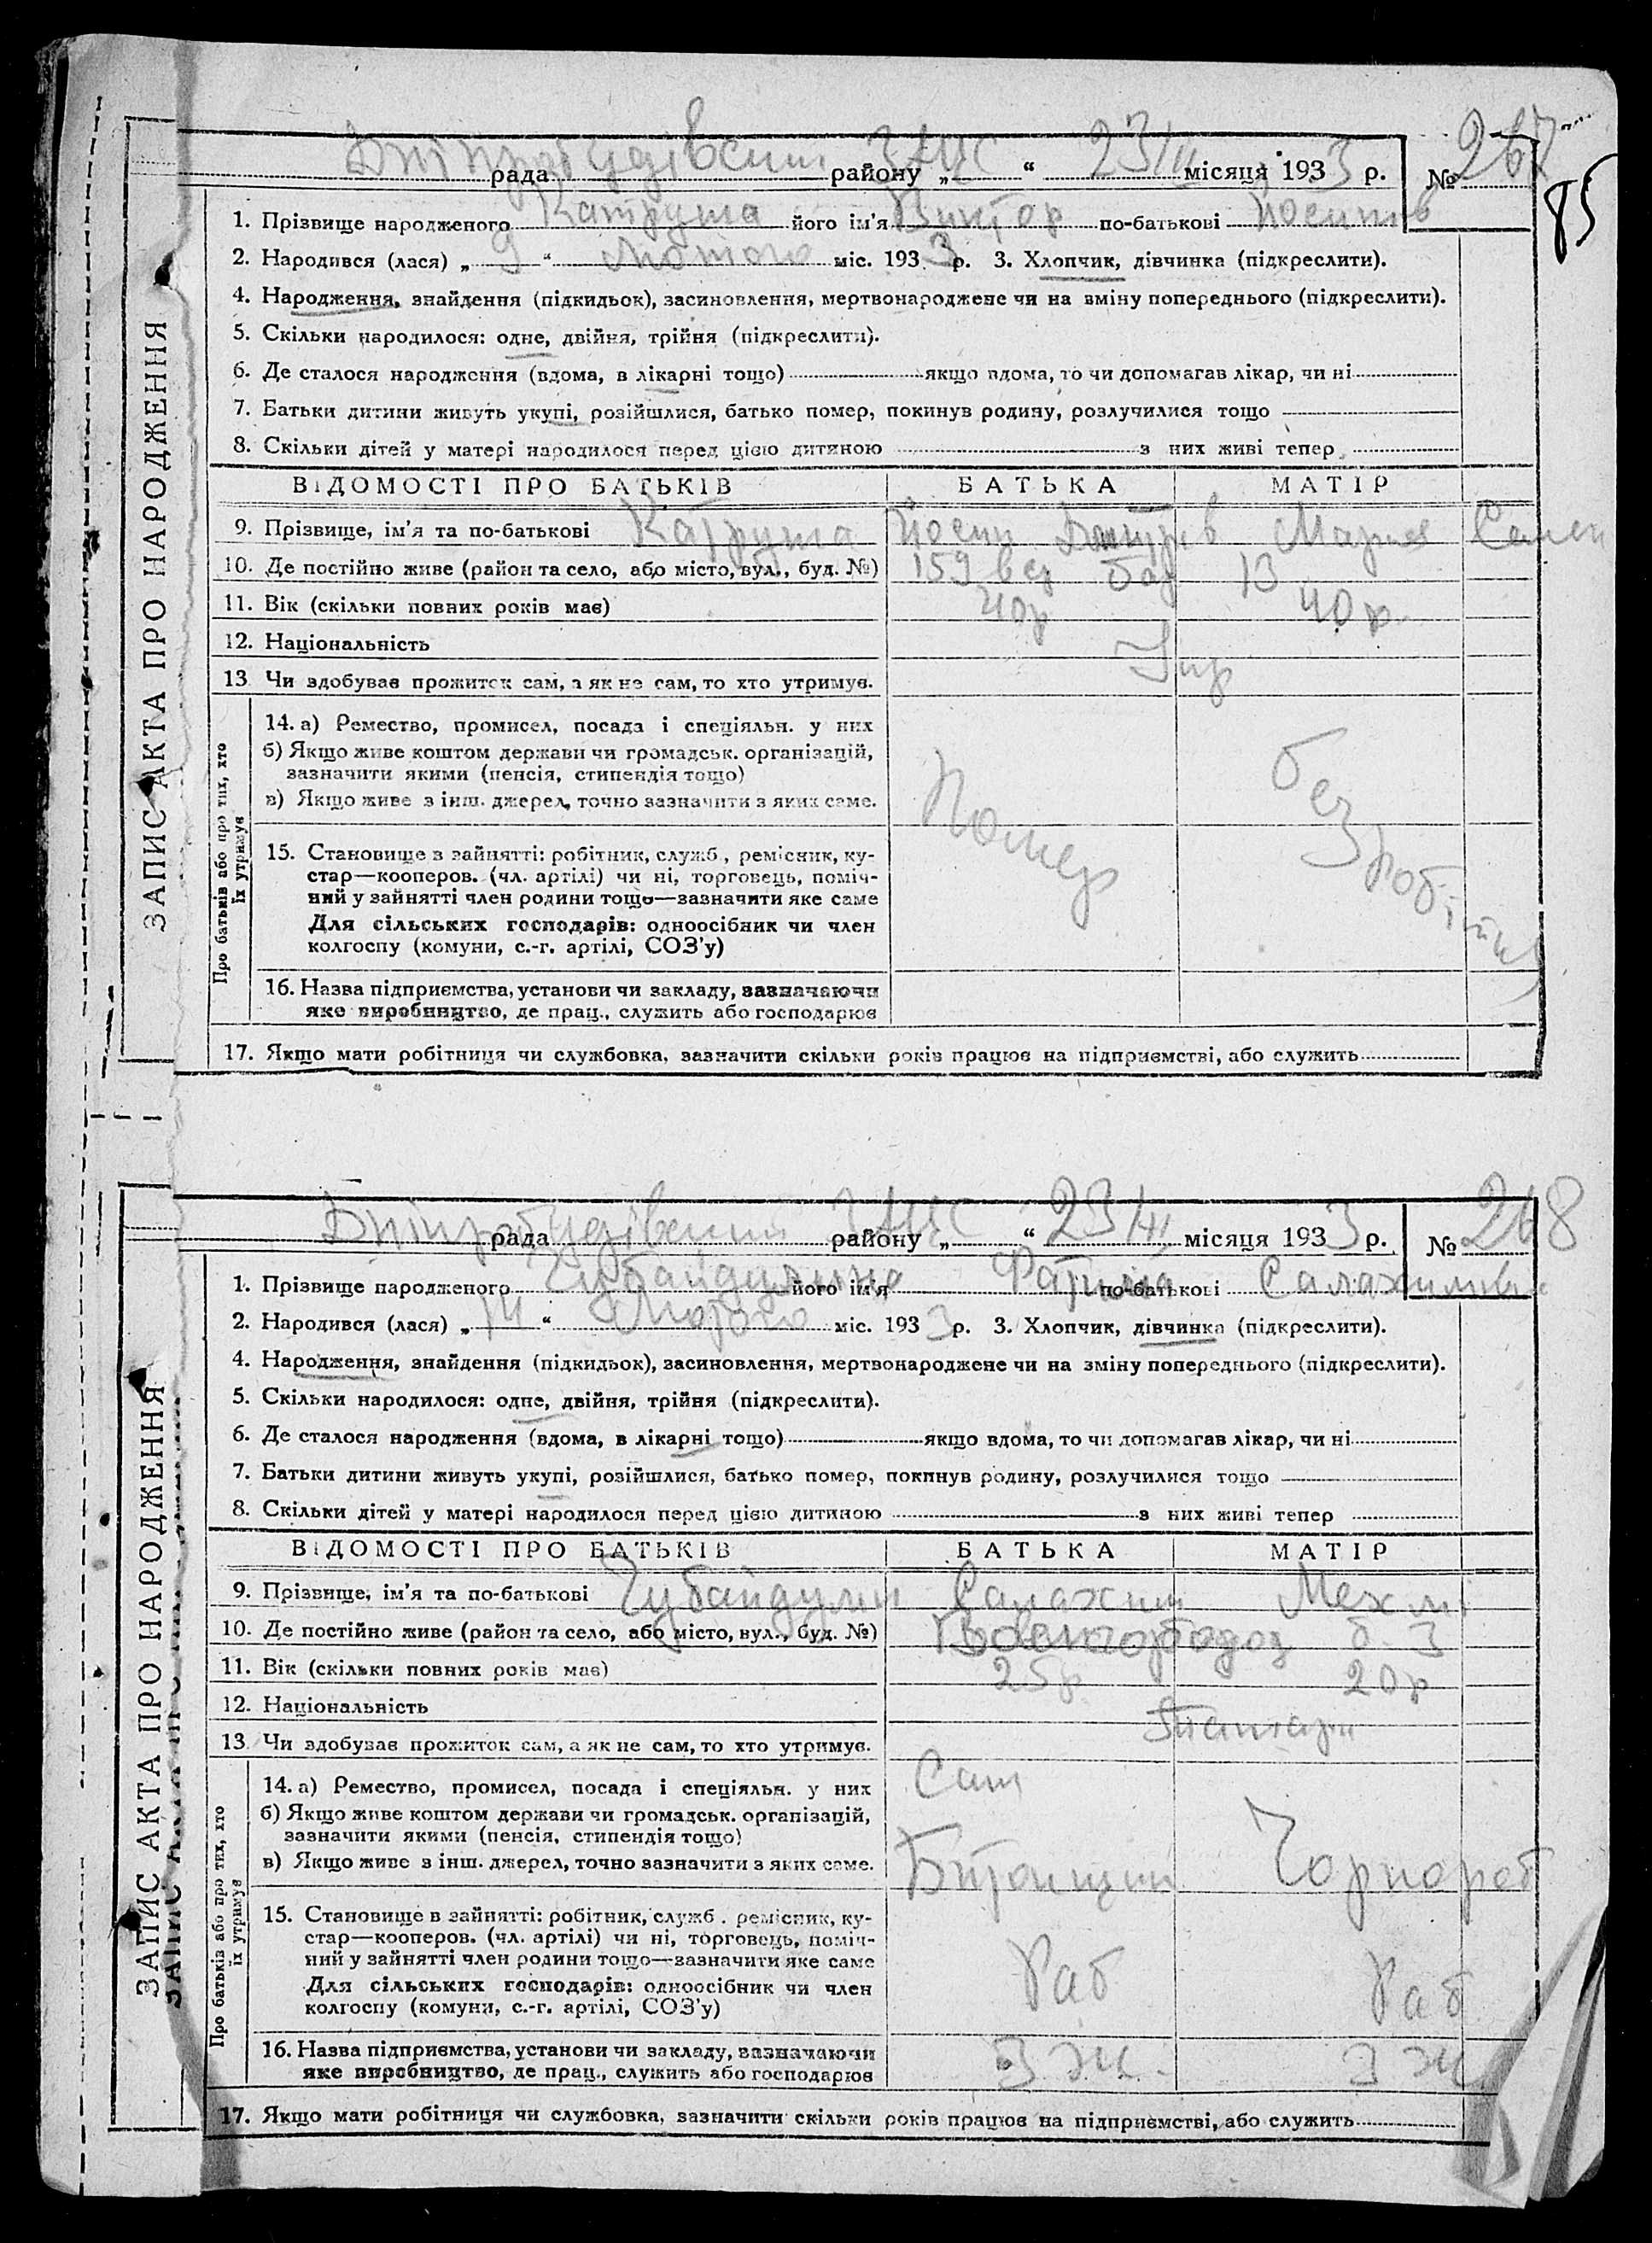 ЗАПИС АКТА ПРО НАРОДЖЕННЯ
Дніпробудівський рада району „ ЗАГС “ 23/III місяця 1933 р. № 267
85
1. Прізвище народженого Катруша його ім'я Виктор по-батькові Йосипів
2. Народився (лася) „ 9 “ Лютого міс. 1933 р. 3. Хлопчик, дівчинка (підкреслити).
4. Народження, знайдення (підкидьок), засиновлення, мертвонароджене чи на зміну попереднього (підкреслити).
5. Скільки народилося: одне, двійня, трійня (підкреслити).
6. Де сталося народження (вдома, в лікарні тощо) якщо вдома, то чи допомагав лікар, чи ні
7. Батьки дитини живуть укупі, розійшлися, батько помер, покинув родину, розлучилися тощо
8. Скільки дітей у матері народилося перед цією дитиною з них живі тепер
ВІДОМОСТІ ПРО БАТЬКІВ БАТЬКА МАТІР
9. Прізвище, ім'я та по-батькові Катруша Йосип Дмитрів Мария Семен
10. Де постійно живе (район та село, або місто, вул., буд. №) 159 13
11. Вік (скільки повних років має) 40р 40 р.
12. Національність Укр
13. Чи здобував прожиток сам, а як не сам, то хто утримує.
Про батьків або про тих, хто їх утримує
14. а) Ремество, промисел, посада і спеціяльн. у них
б) Якщо живе коштом держави чи громадськ. організацій,
зазначити якими (пенсія, стипендія тощо)
в) Якщо живе з інш. джерел, точно зазначити з яких саме.
Помер безробітня
15. Становище в зайнятті: робітник, служб., ремісник, ку-
стар—кооперов. (чл. артілі) чи ні, торговець, поміч-
ний у зайнятті член родини тощо—зазначити яке саме
Для сільських господарів: одноосібник чи член
колгоспу (комуни, с.-г. артілі, СОЗ'у)
16. Назва підприємства, установи чи закладу, зазначаючи
яке виробництво, де прац., служить або господарює
17. Якщо мати робітниця чи службовка, зазначити скільки років працює на підприємстві, або служить
ЗАПИС АКТА ПРО НАРОДЖЕННЯ
Дніпробудівський рада району „ ЗАГС “ 23/III місяця 1933 р. № 268
1. Прізвище народженого Губайдулина його ім'я Фатима по-батькові
2. Народився (лася) „ 14 “ Лютого міс. 1933 р. 3. Хлопчик, дівчинка (підкреслити).
4. Народження, знайдення (підкидьок), засиновлення, мертвонароджене чи на зміну попереднього (підкреслити).
5. Скільки народилося: одне, двійня, трійня (підкреслити).
6. Де сталося народження (вдома, в лікарні тощо) якщо вдома, то чи допомагав лікар, чи ні
7. Батьки дитини живуть укупі, розійшлися, батько помер, покинув родину, розлучилися тощо
8. Скільки дітей у матері народилося перед цією дитиною з них живі тепер
ВІДОМОСТІ ПРО БАТЬКІВ БАТЬКА МАТІР
9. Прізвище, ім'я та по-батькові Губайдулин
10. Де постійно живе (район та село, або місто, вул., буд. №) б. 3
11. Вік (скільки повних років має) 25р 20р
12. Національність Татари
13. Чи здобував прожиток сам, а як не сам, то хто утримує.
Про батьків або про тих, хто їх утримує
14. а) Ремество, промисел, посада і спеціяльн. у них Сам
б) Якщо живе коштом держави чи громадськ. організацій,
зазначити якими (пенсія, стипендія тощо)
в) Якщо живе з інш. джерел, точно зазначити з яких саме. Бетонщик Чорнороб
15. Становище в зайнятті: робітник, служб., ремісник, ку-
стар—кооперов. (чл. артілі) чи ні, торговець, поміч-
ний у зайнятті член родини тощо—зазначити яке саме
Для сільських господарів: одноосібник чи член
колгоспу (комуни, с.-г. артілі, СОЗ'у)
Раб Раб
16. Назва підприємства, установи чи закладу, зазначаючи
яке виробництво, де прац., служить або господарює
17. Якщо мати робітниця чи службовка, зазначити скільки років працює на підприємстві, або служить